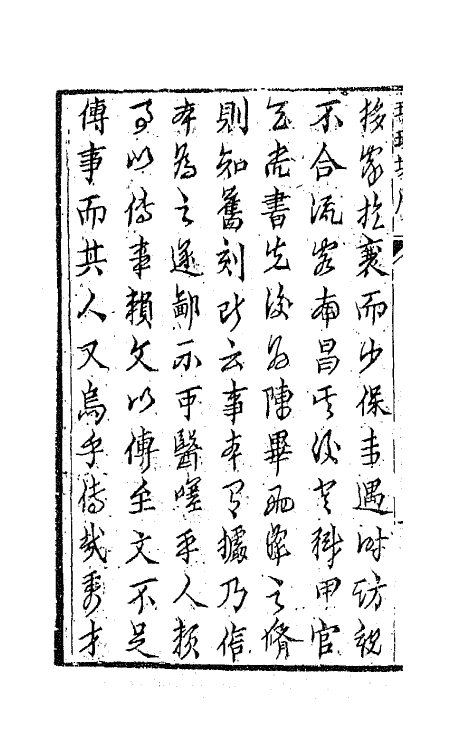 移家於襄而少保未遇時訪親
不合流寓南昌其後登科甲官
至尚書先後為陳畢兩之婿
則知舊刻所云事本有據乃信
本為之遂鄙不可醫嗟乎人賴
事以傳事賴文以傳至文不足
傳事而其人又烏乎傳哉秀才